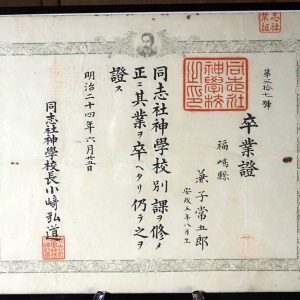 志社
業証
第弐拾七號
卒業證
福嶋縣
兼子常五郎
安政五年八月生
同志社
神學校
之印
同志社神學校別課ヲ修メ
正ニ其業ヲ卒ヘタリ仍テ之ヲ
證ス
明治二十四年六月廿五日
同志社神學校長小崎弘道